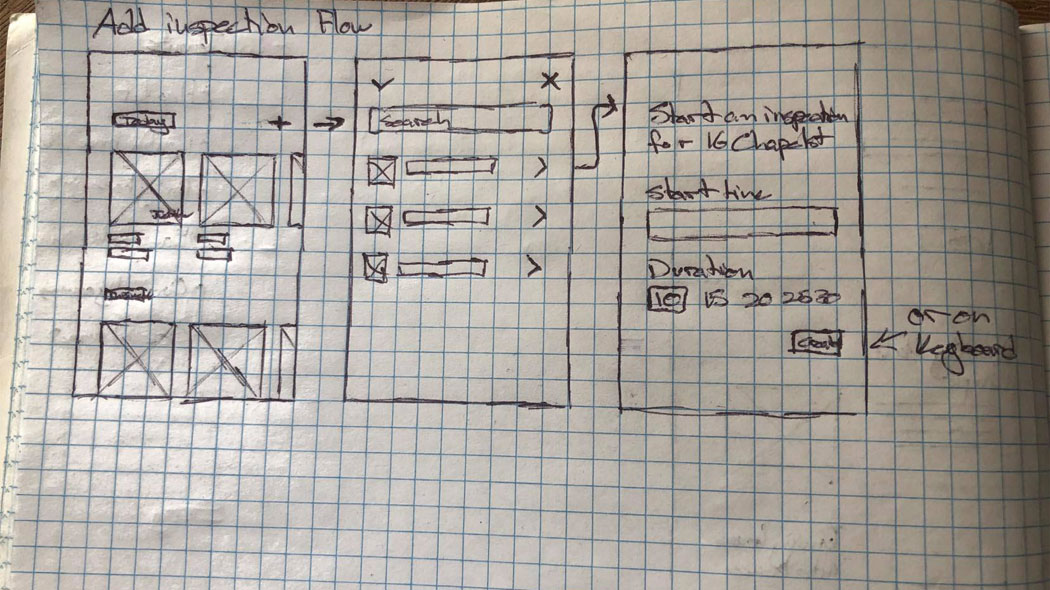 Add inspection Flow
Today
Search
Start an inspection
for 16 Chapelst
Start time
Duration
10 15 20 25 30
Create
or on
Keyboard